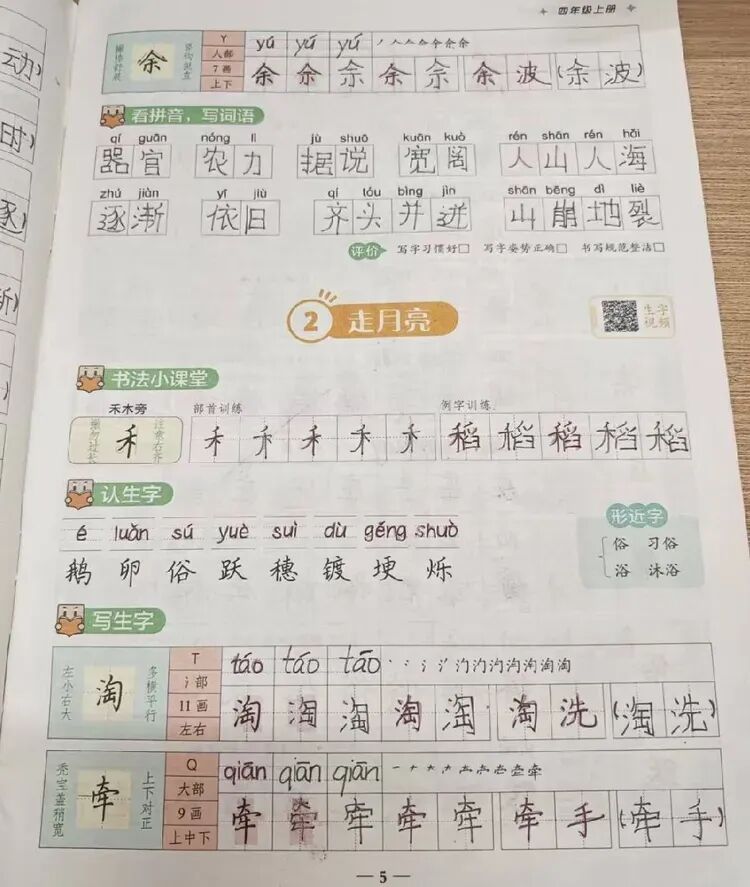 四年级上册
动)
时)
逐)
渐)
撇捺舒展 余 竖钩挺直 Y yú yú yú
人部
7画 余 余 余 余 余 余 波 (余 波)
上下
看拼音，写词语
qí guān nóng lì jù shuō kuān kuò rén shān rén hǎi
器官 农力 据说 宽阔 人山人海
zhú jiàn yī jiù qí tóu bìng jìn shān bēng dì liè
逐渐 依旧 齐头并进 山崩地裂
评价 写字习惯好□ 写字姿势正确□ 书写规范整洁□
2 走月亮 生字视频
书法小课堂
禾木旁 部首训练 例字训练
撇勿过长 禾 注意右齐 禾 禾 禾 禾 禾 稻 稻 稻 稻 稻
认生字
é luǎn sú yuè suì dù gěng shuò 形近字
鹅 卵 俗 跃 穗 镀 埂 烁
俗 习俗
浴 沐浴
写生字
左小右大 淘 多横平行 T táo táo tāo
氵部
11画 淘 淘 淘 淘 淘 淘 洗 (淘 洗)
左右
秃宝盖稍宽 牵 上下对正 Q qiān qiān qiān
大部
9画 牵 牵 牵 牵 牵 牵 手 (牵 手)
上中下
— 5 —